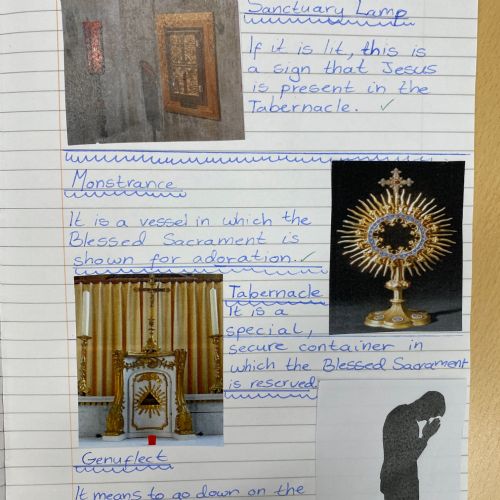 Sanctuary Lamp
If it is lit, this is
a sign that Jesus
is present in the
Tabernacle.
Monstrance
It is a vessel in which the
Blessed Sacrament is
shown for adoration.
Tabernacle
It is a
special,
secure container in
which the Blessed Sacrament
is reserved
Genuflect
It means to go down on the